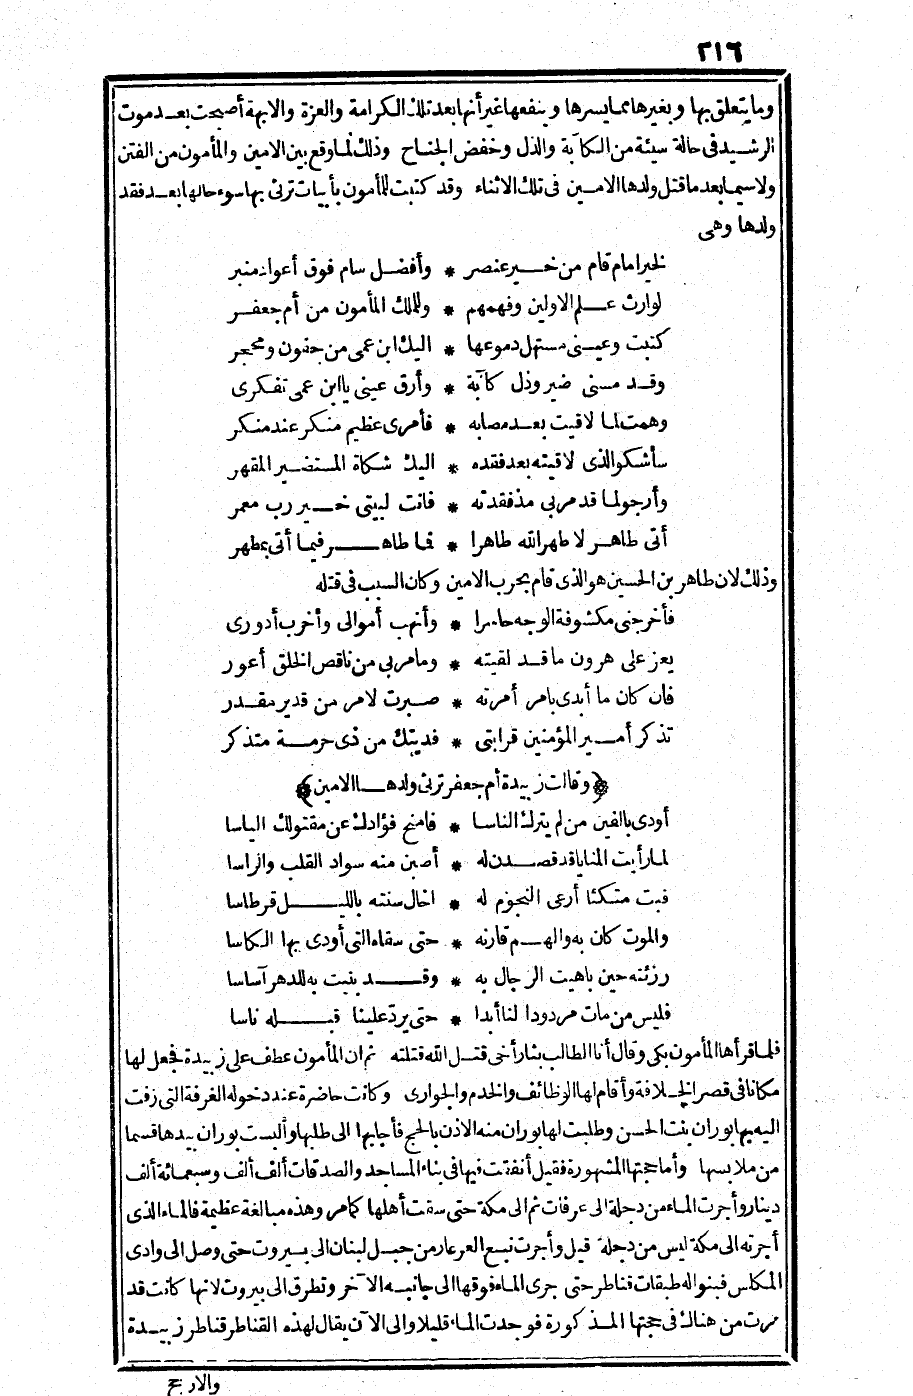 ٢١٦
وما يتعلق بها وبغيرها مما يسرها وينفعها غير أنها بعد تلك الكرامة والعزة والابهة أصبحت بعد موت
الرشيد فى حالة سيئة من الكآبة والذل وخفض الجناح وذلك لما وقع بين الامين والمأمون من الفتن
ولا سيما بعد ما قتل ولدها الامين فى تلك الاثناء وقد كتبت للمأمون بأبيات ترثى بها سوء حالها بعد فقد
ولدها وهى
لخير امام قام من خير عنصر * وأفضل سام فوق أعواد منبر
لوارث علم الاولين وفهمهم * وللملك المأمون من أم جعفر
كتبت وعينى مستهل دموعها * اليك ابن عمى من جفون ومحجر
وقد مسنى ضير وذل كآبة * وأرق عينى يا ابن عمى تفكرى
وهمت لما لاقيت بعد مصابه * فأمرى عظيم منكر عند منكر
سأشكو الذى لاقيته بعد فقده * اليك شكاة المستضير المقهر
وأرجو لما قد مر بى مذ فقدته * فانت لبيتى خير رب معمر
أتى طاهر لا طهر الله طاهرا * فما طاهر فيما أتى بمطهر
وذلك لان طاهر بن الحسين هو الذى قام بحرب الامين وكان السبب فى قتله
فأخرجنى مكشوفة الوجه حاسرا * وأنهب أموالى وأخرب أدورى
يعز على هرون ما قد لقيته * وما مر بى من ناقص الخلق أعور
فان كان ما أبدى بامر أمرته * صبرت لامر من قدير مقدر
تذكر أمير المؤمنين قرابتى * فديتك من ذى حرمة متذكر
﴿وقالت زبيدة أم جعفر ترثى ولدها الامين﴾
أودى بالفين من لم يترك الناسا * فامنح فؤادك عن مقتولك الياسا
لما رأيت المنايا قد قصدن له * أصبن منه سواد القلب والراسا
فبت متكئا أرعى النجوم له * اخال سنته بالليل قرطاسا
والموت كان به والهم قارنه * حتى سقاه التى أودى بها الكاسا
رزئته حين باهيت الرجال به * وقد بنيت به للدهر آساسا
فليس من مات مردودا لنا أبدا * حتى يرد علينا قبله ناسا
فلما قرأها المأمون بكى وقال أنا الطالب بثار أخى قتل الله قتلته ثم ان المأمون عطف على زبيدة فجعل لها
مكانا فى قصر الخلافة وأقام لها الوظائف والخدم والجوارى وكانت حاضرة عند دخوله الغرفة التى زفت
اليه بها بوران بنت الحسن وطلبت لها بوران منه الاذن بالحج فأجابها الى طلبها وألبست بوران بيدها قسما
من ملابسها وأما حجتها المشهورة فقيل أنفقت فيها فى بناء المساجد والصدقات ألف ألف وسبعمائة ألف
دينار وأجرت الماء من دجلة الى عرفات ثم الى مكة حتى سقت أهلها كما مر وهذه مبالغة عظيمة فالماء الذى
أجرته الى مكة ليس من دجلة قيل وأجرت نبع العرعار من جبل لبنان الى بيروت حتى وصل الى وادى
المكلس فبنوا له طبقات قناطر حتى جرى الماء فوقها الى جانبه الآخر وتطرق الى بيروت لانها كانت قد
مرت من هناك فى حجتها المذكورة فوجدت الماء قليلا والى الآن يقال لهذه القناطر قناطر زبيدة
والارجح